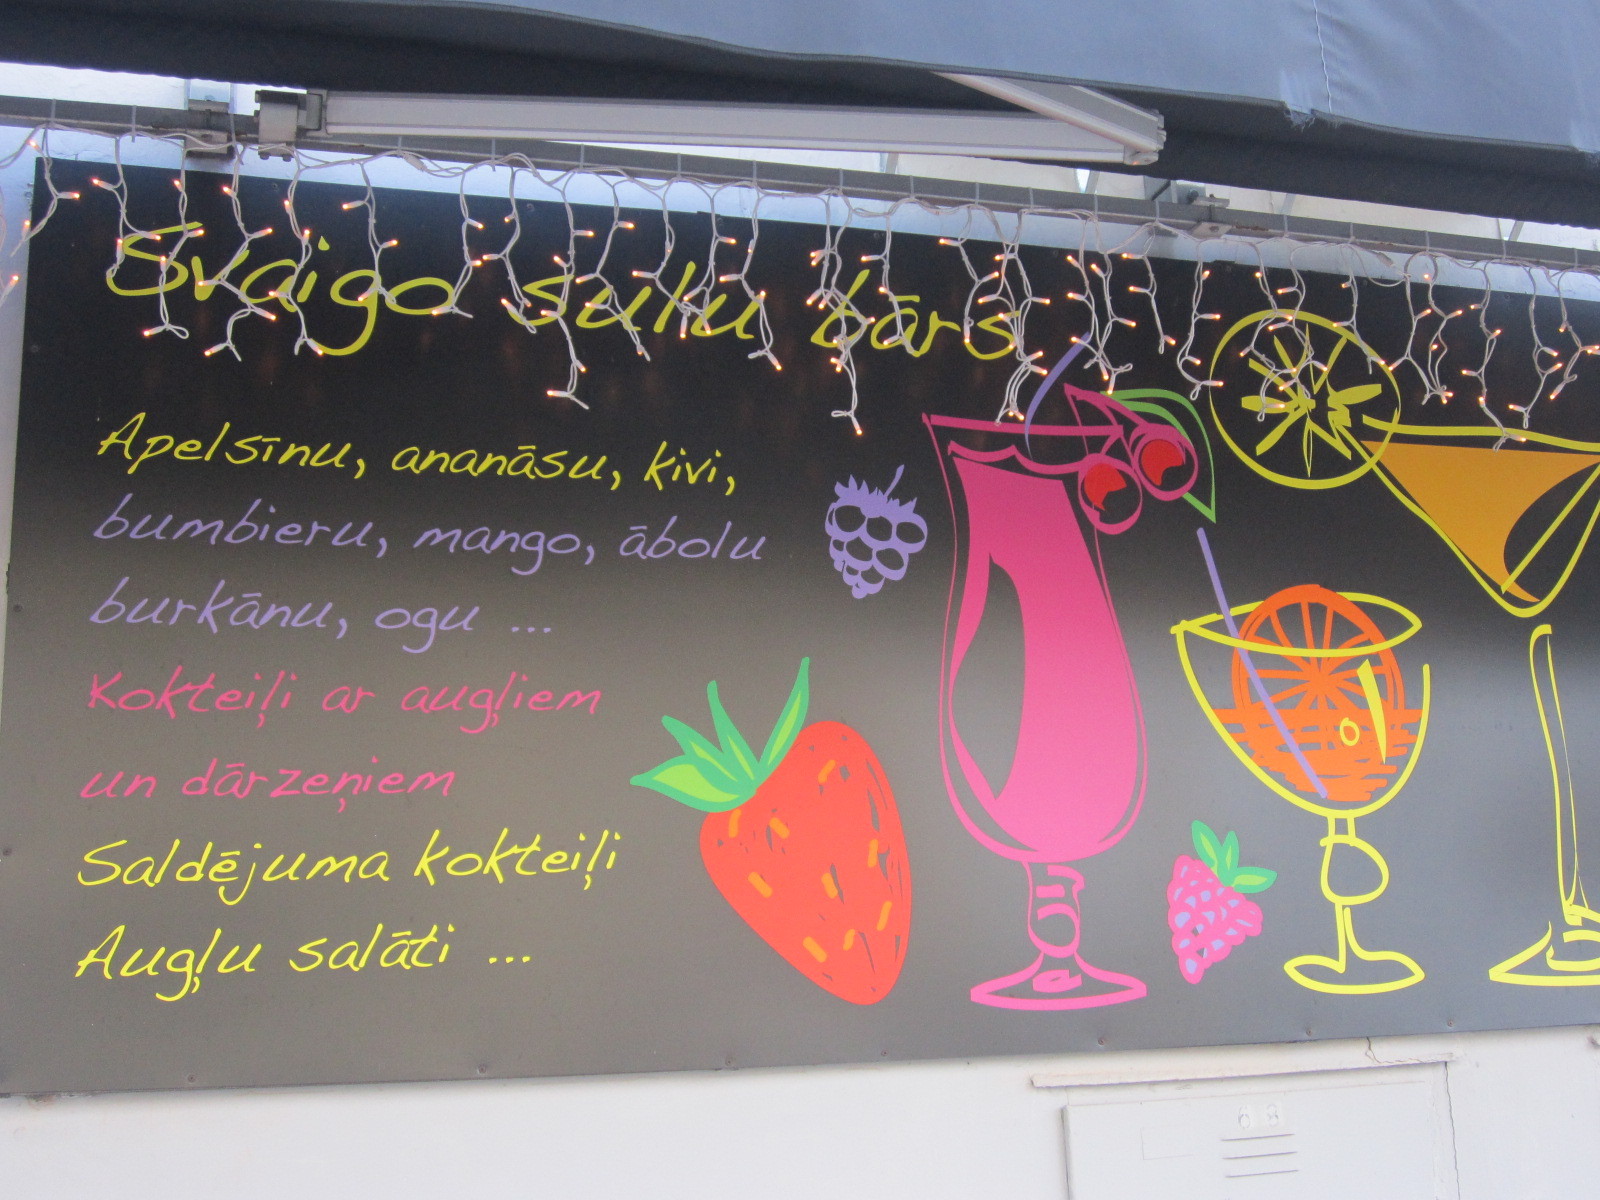 Svaigo sulu bārs
Apelsīnu, ananāsu, kivi,
bumbieru, mango, ābolu
burkānu, ogu ...
Kokteiļi ar augļiem
un dārzeņiem
Saldējuma kokteiļi
Augļu salāti ...
68